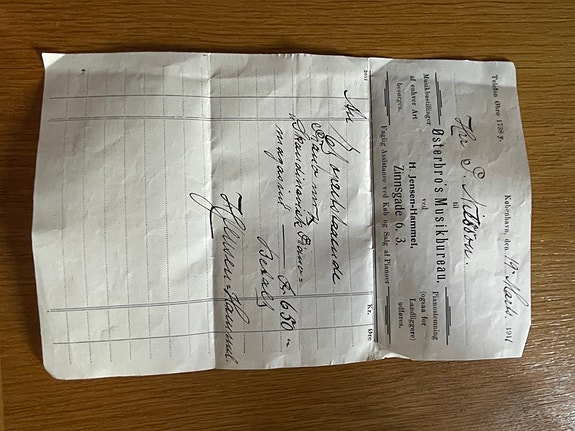 Telefon Øbro 1738 y.
København, den 19 Marts 191
Hr. S. Nilsson.
til
Østerbro's Musikbureau,
ved
H. Jensen-Hammel,
Zinnsgade 6. 3.
Musikbestillinger
af enhver Art
besørges.
Pianostemning
(ogsaa for
Landliggere)
udføres.
Faglig Assistance ved Køb og Salg af Pianoer
Kr. Øre
Piano
Skandinavisk Piano=
magasin Kr. 650 "
Betalt
H. Jensen-Hammel.